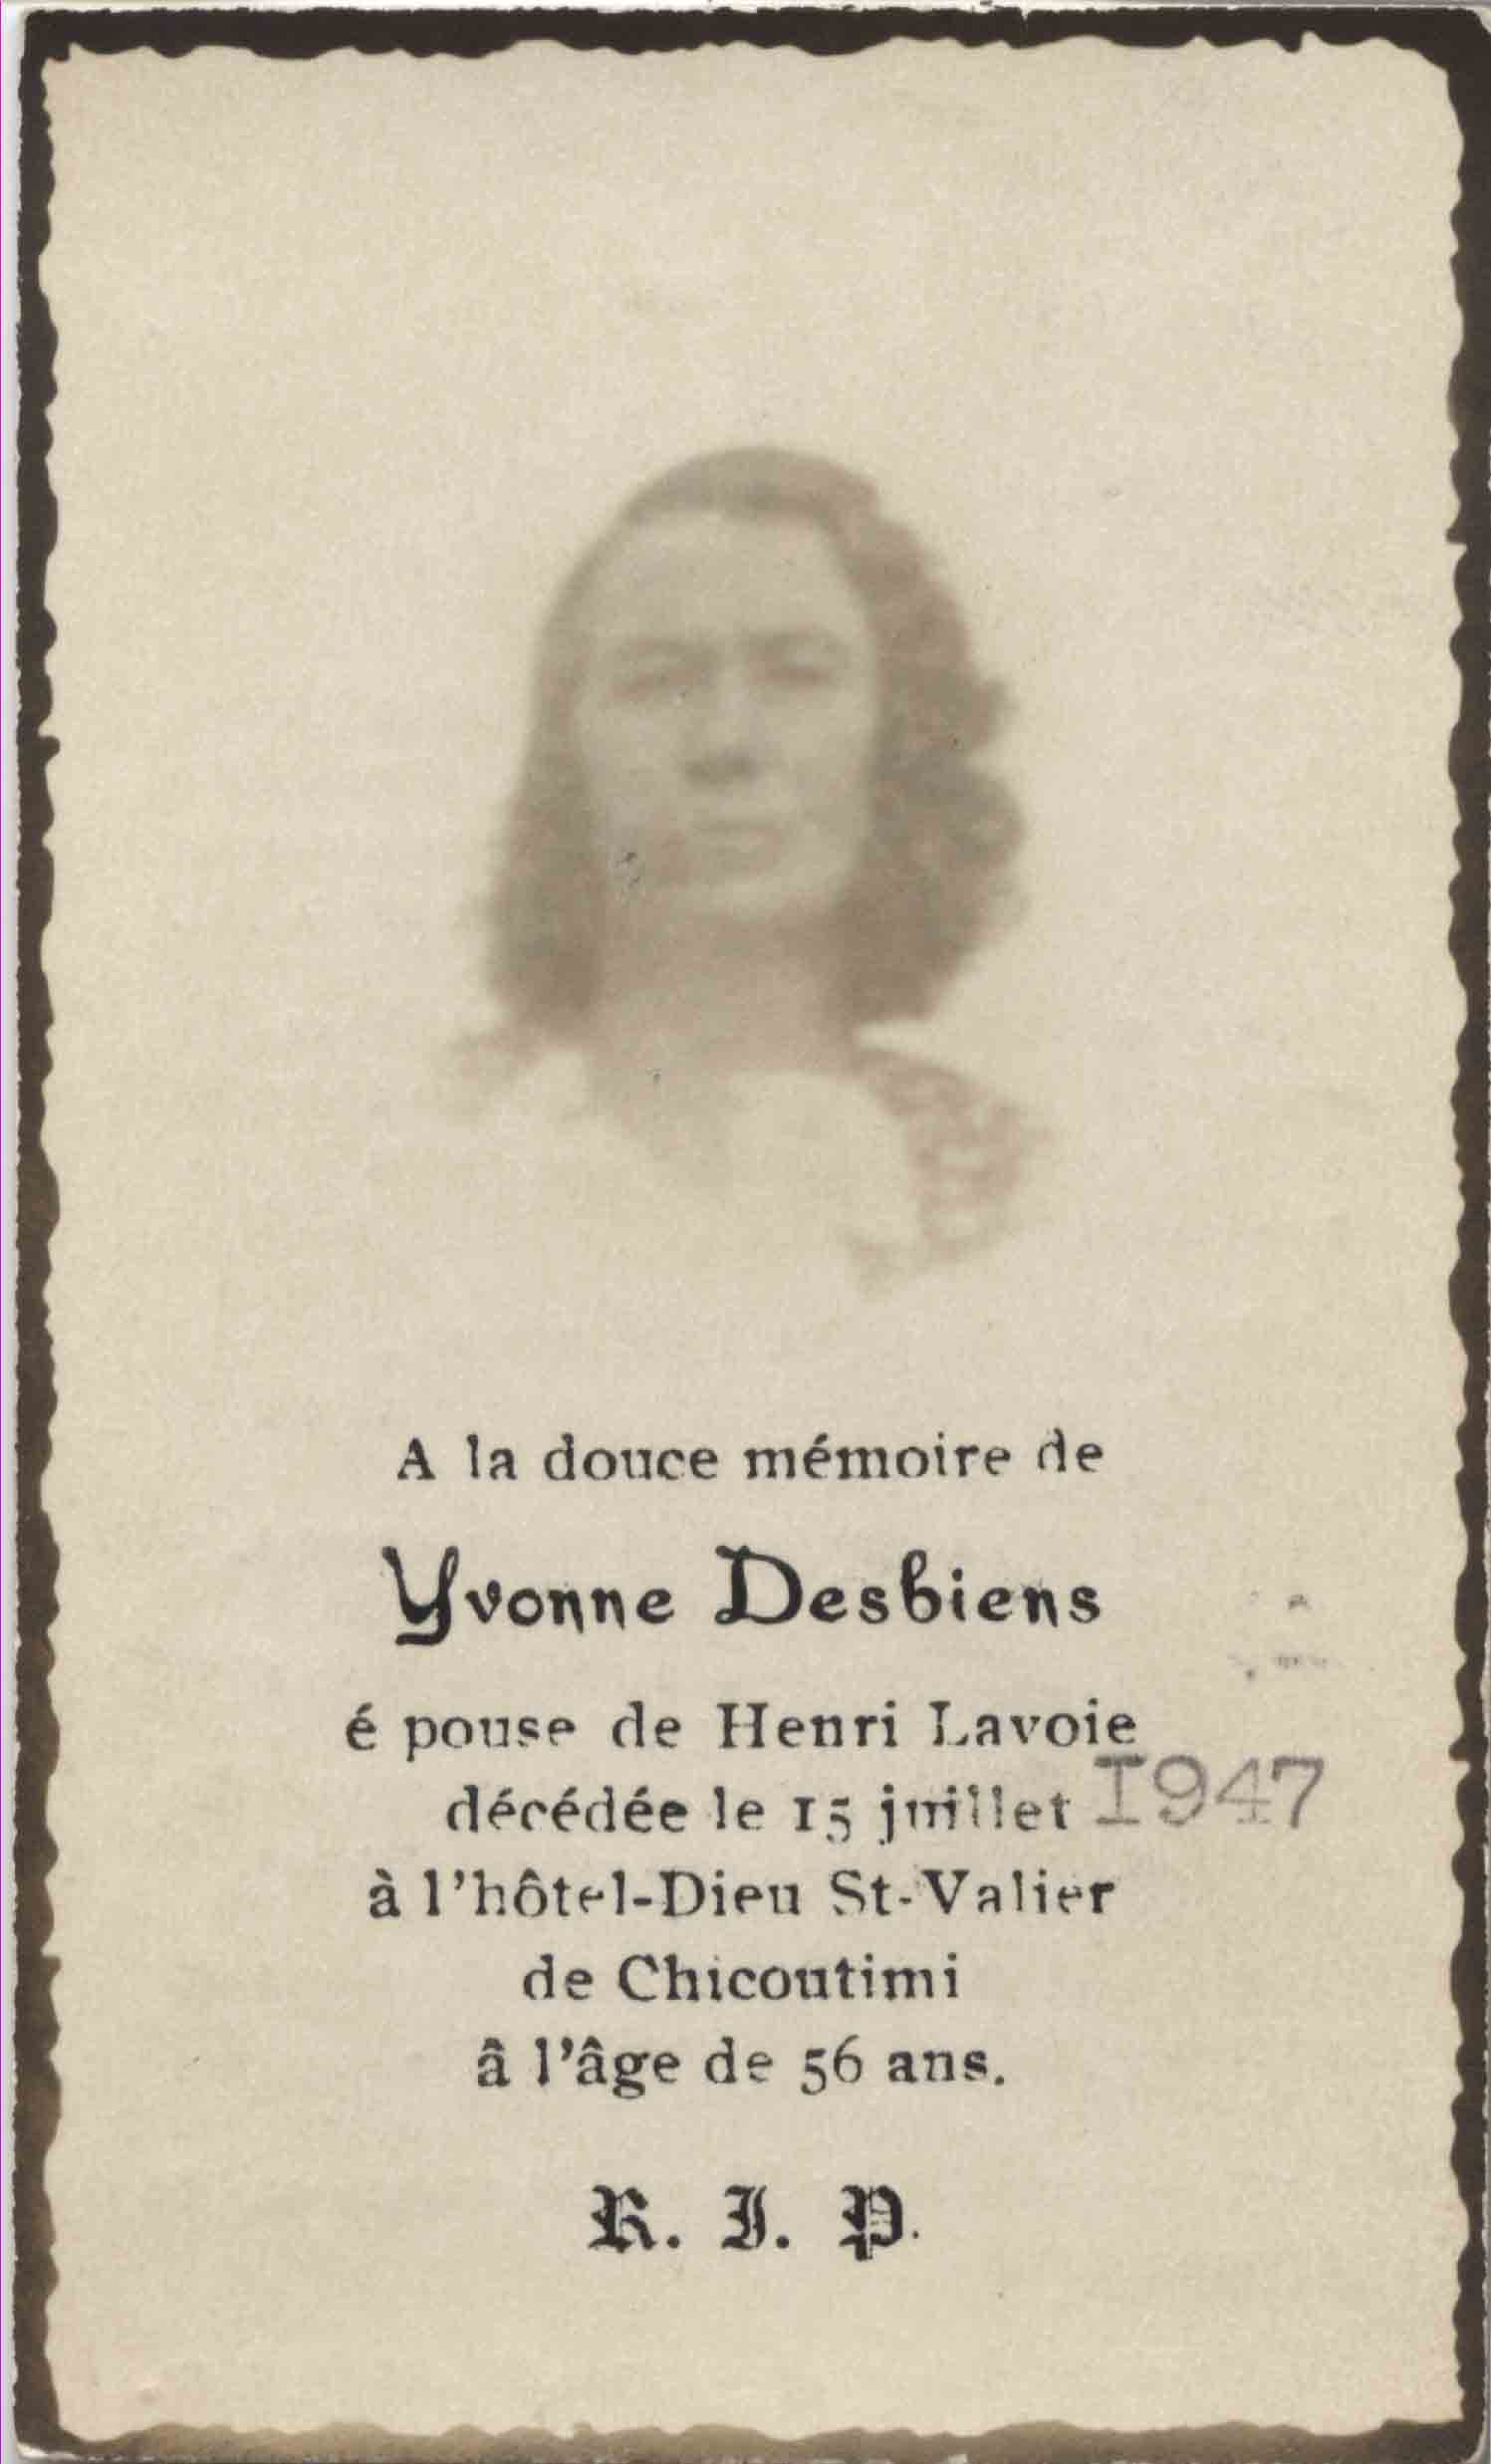 A la douce mémoire de
Yvonne Desbiens
é pouse de Henri Lavoie
décédée le 15 juillet 1947
à l'hôtel-Dieu St-Valier
de Chicoutimi
â l'âge de 56 ans.
R. I. P.